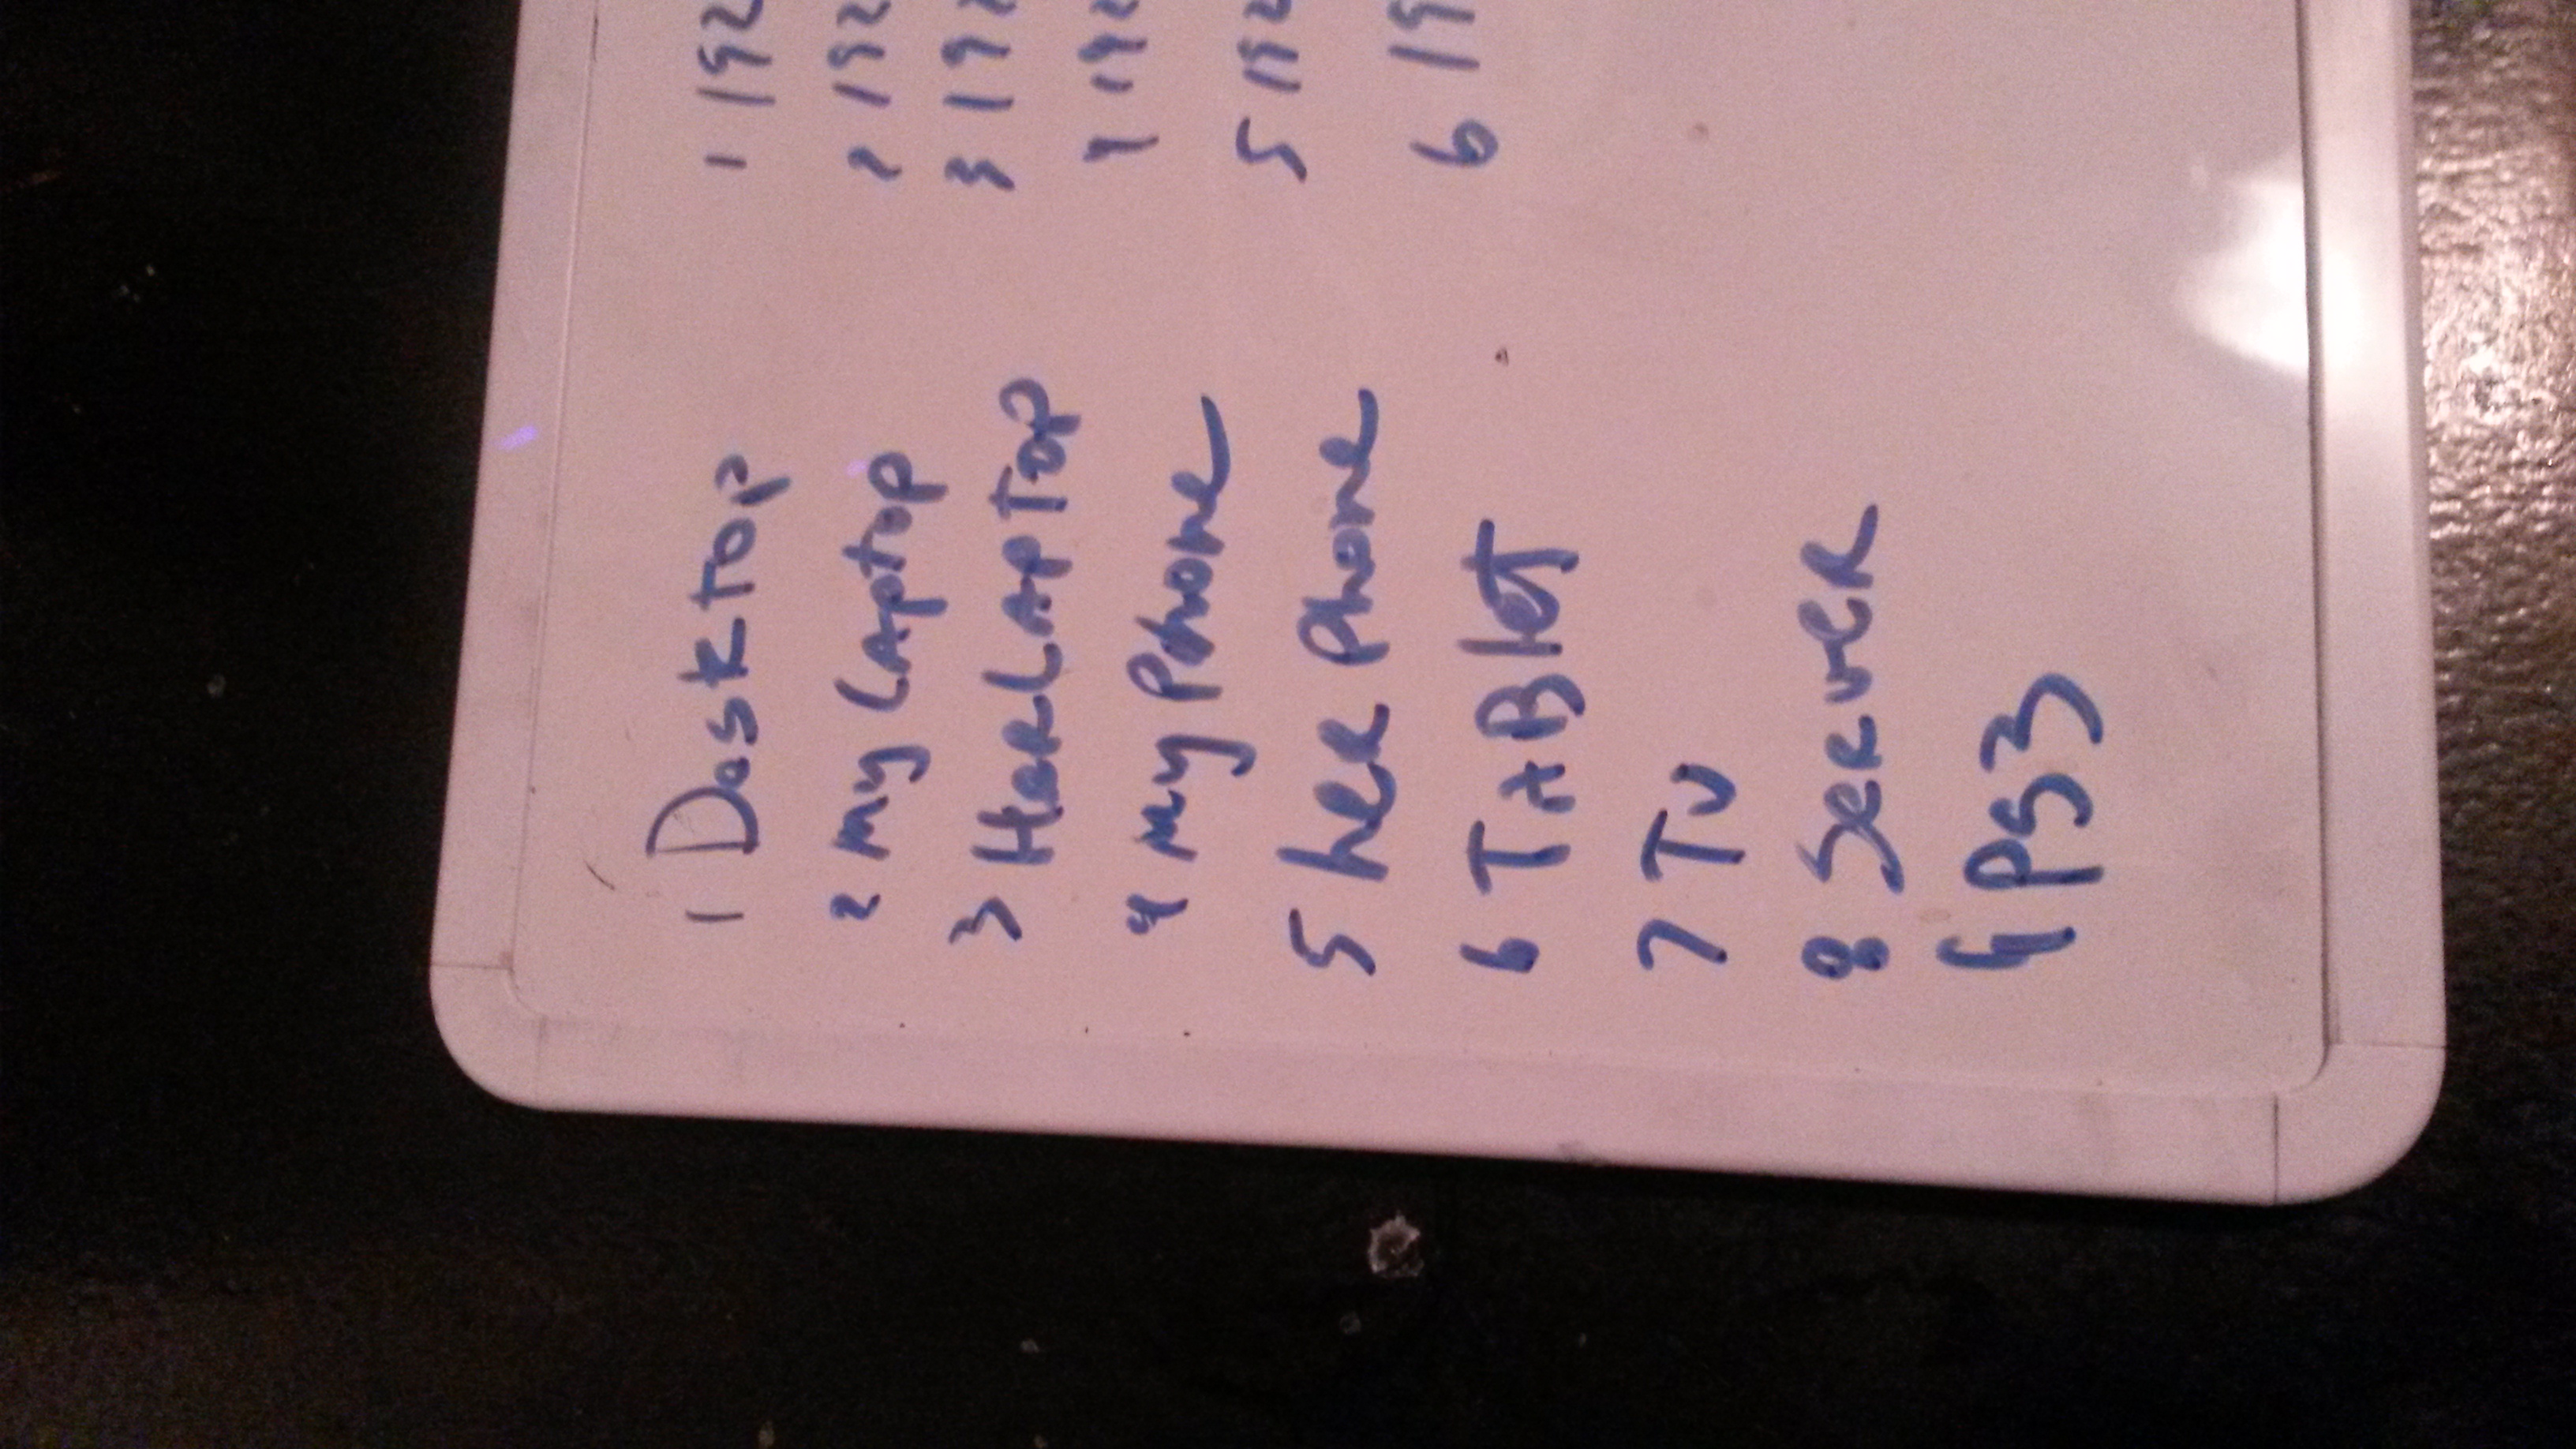 1 Desktop
2 my Laptop
3 Her LapTop
4 my Phone
5 her Phone
6 TABlet
7 TV
8 Server
9 PS3
1 192
2 192
3 192
4 192
5 192
6 19